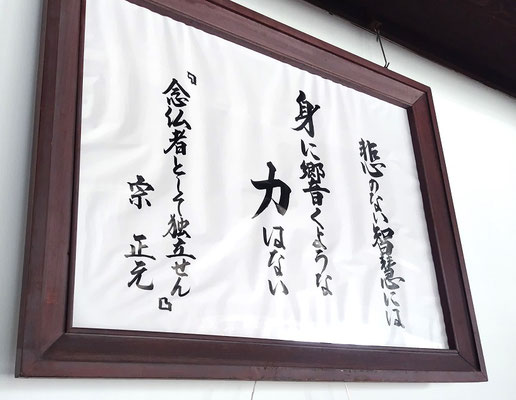 悲のない智慧には
身に響くような
力はない
『念仏者として独立せん』
宗 正元